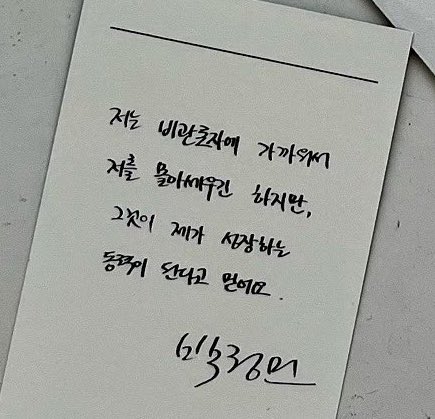 저는 비관론자에 가까워서
저를 몰아세우긴 하지만,
그것이 제가 성장하는
동력이 된다고 믿어요.
박정민